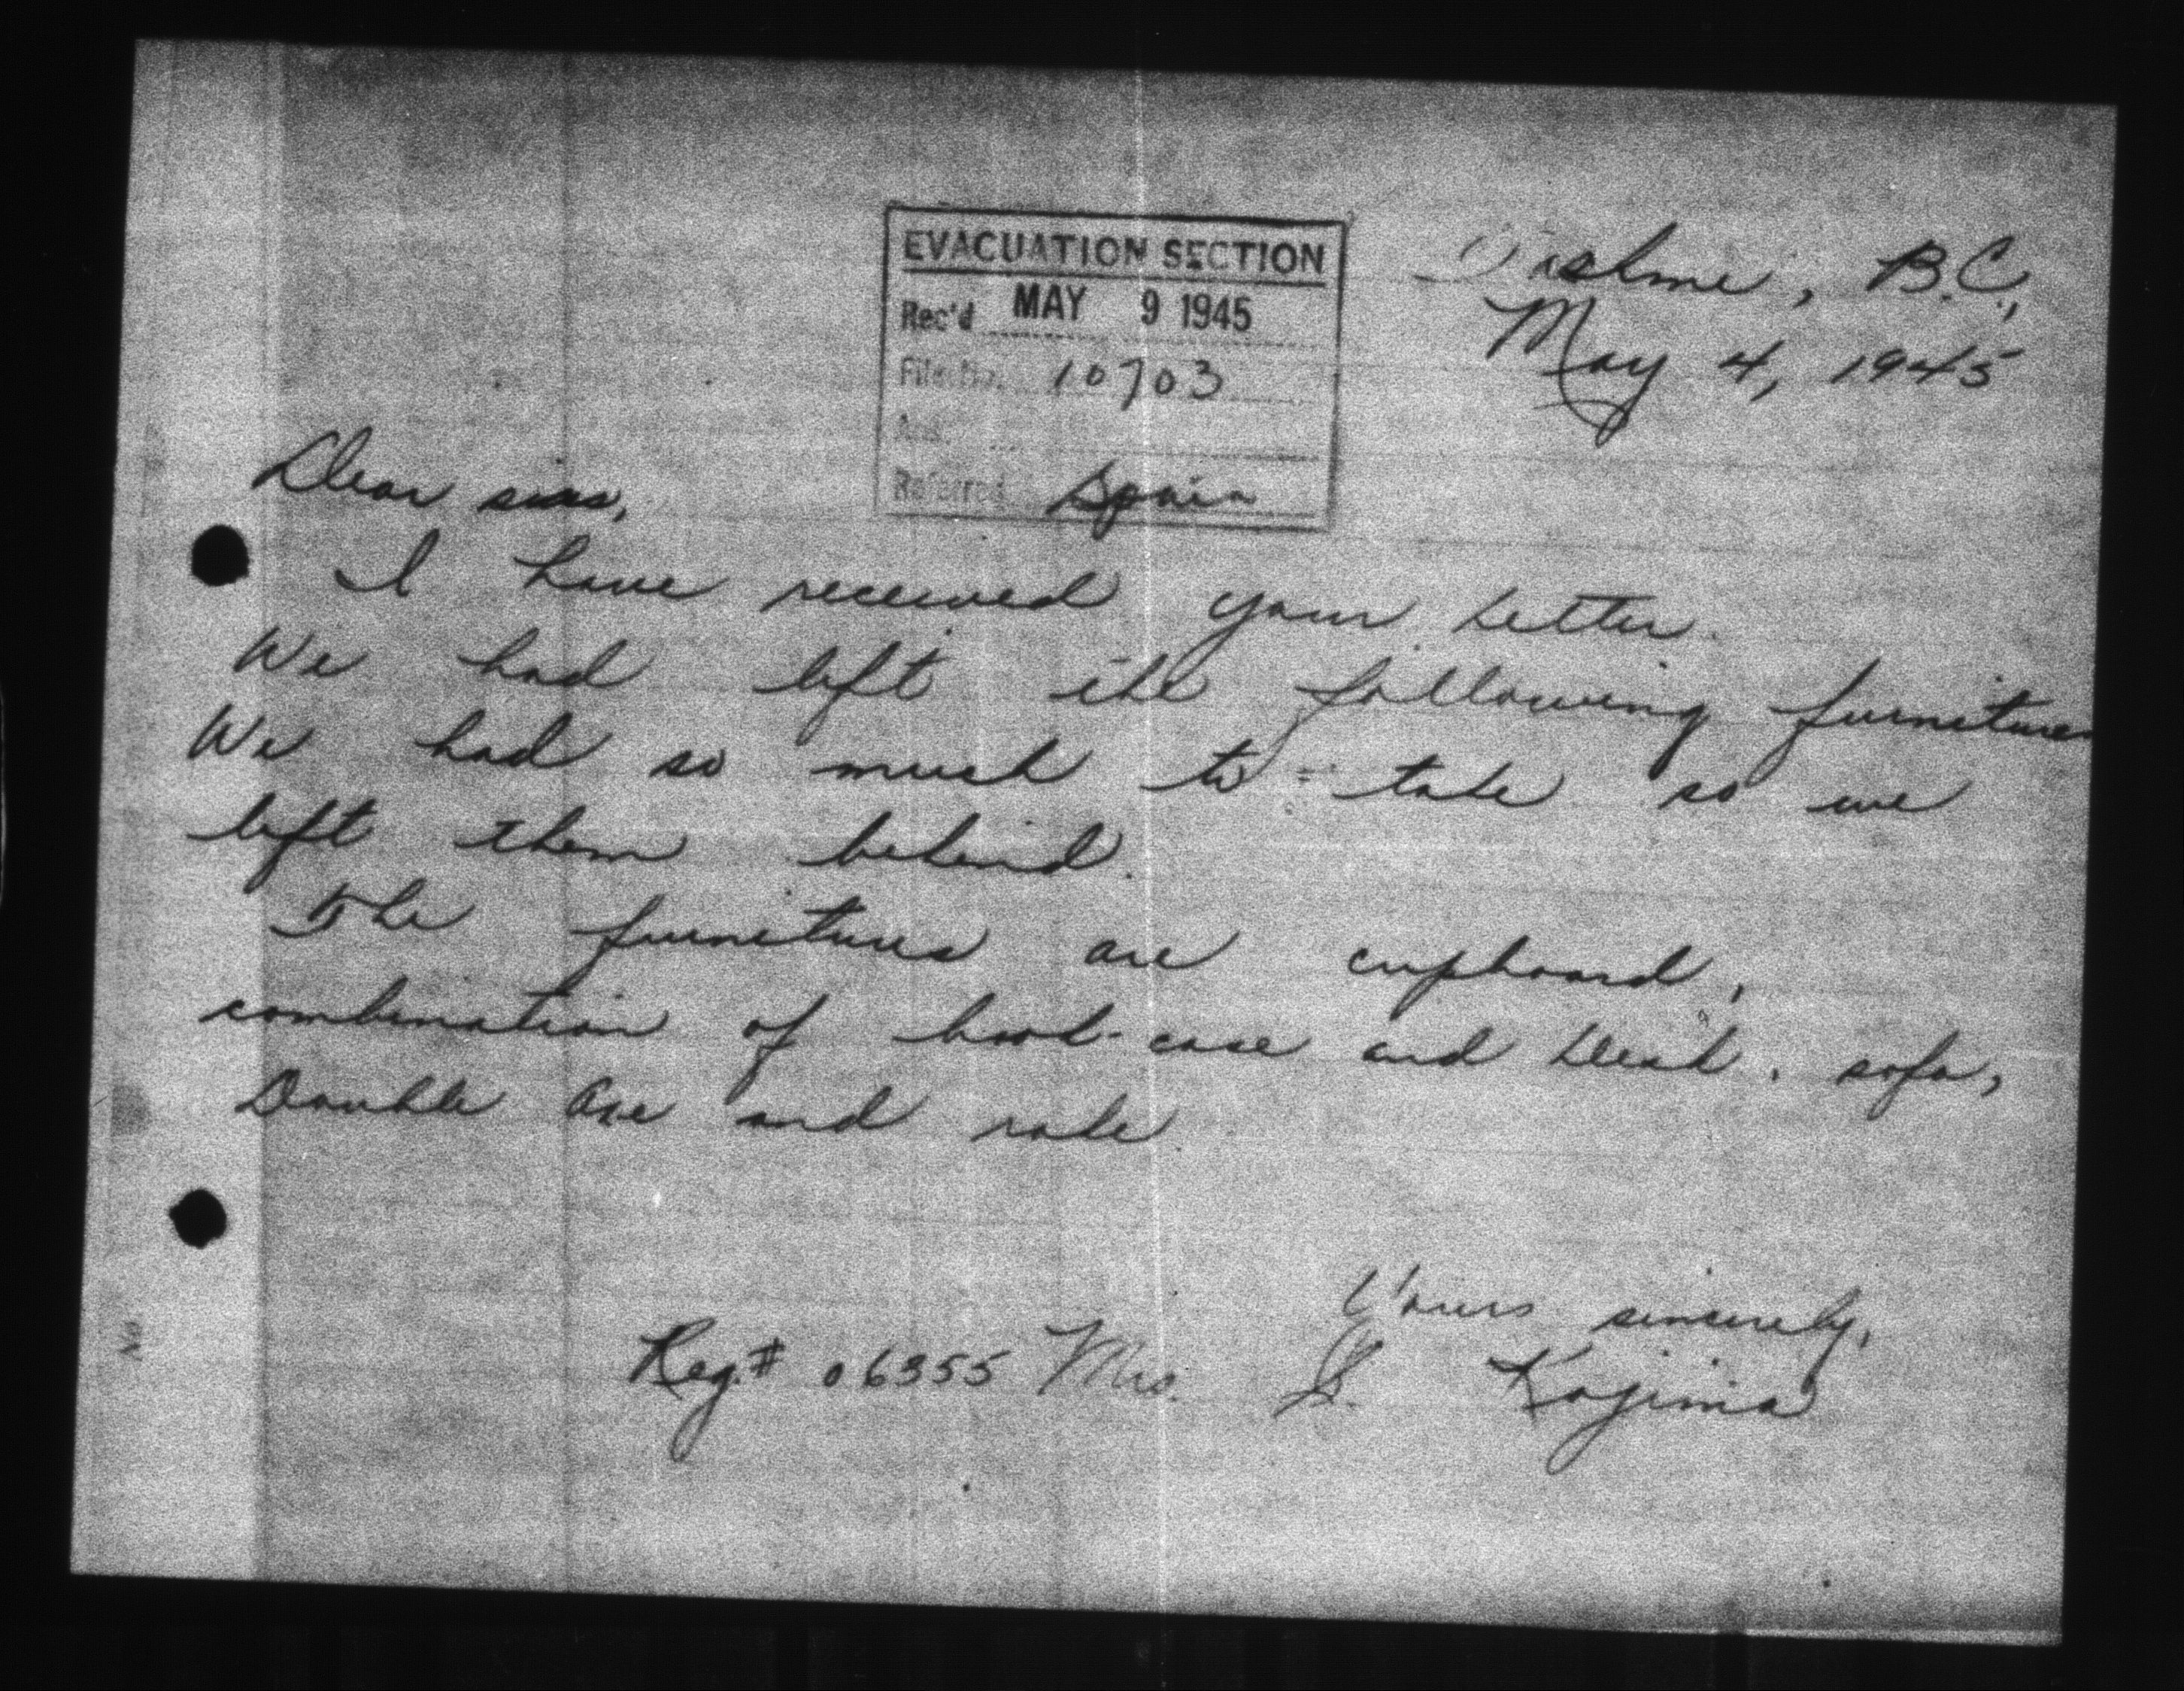 EVACUATION SECTION
Rec'd MAY 9 1945
File No. 10703
Ans.
Referred Spain
Tashme, B.C.,
May 4, 1945
Dear sirs,
I have received your letter.
We had left the following furnitures
We had so much to take so we
left them behind.
The furnitures are cupboard,
combination of book-case and desk, sofa,
Double axe and rake
Yours sincerely,
Reg.# 06355 Mrs. S. Kojima